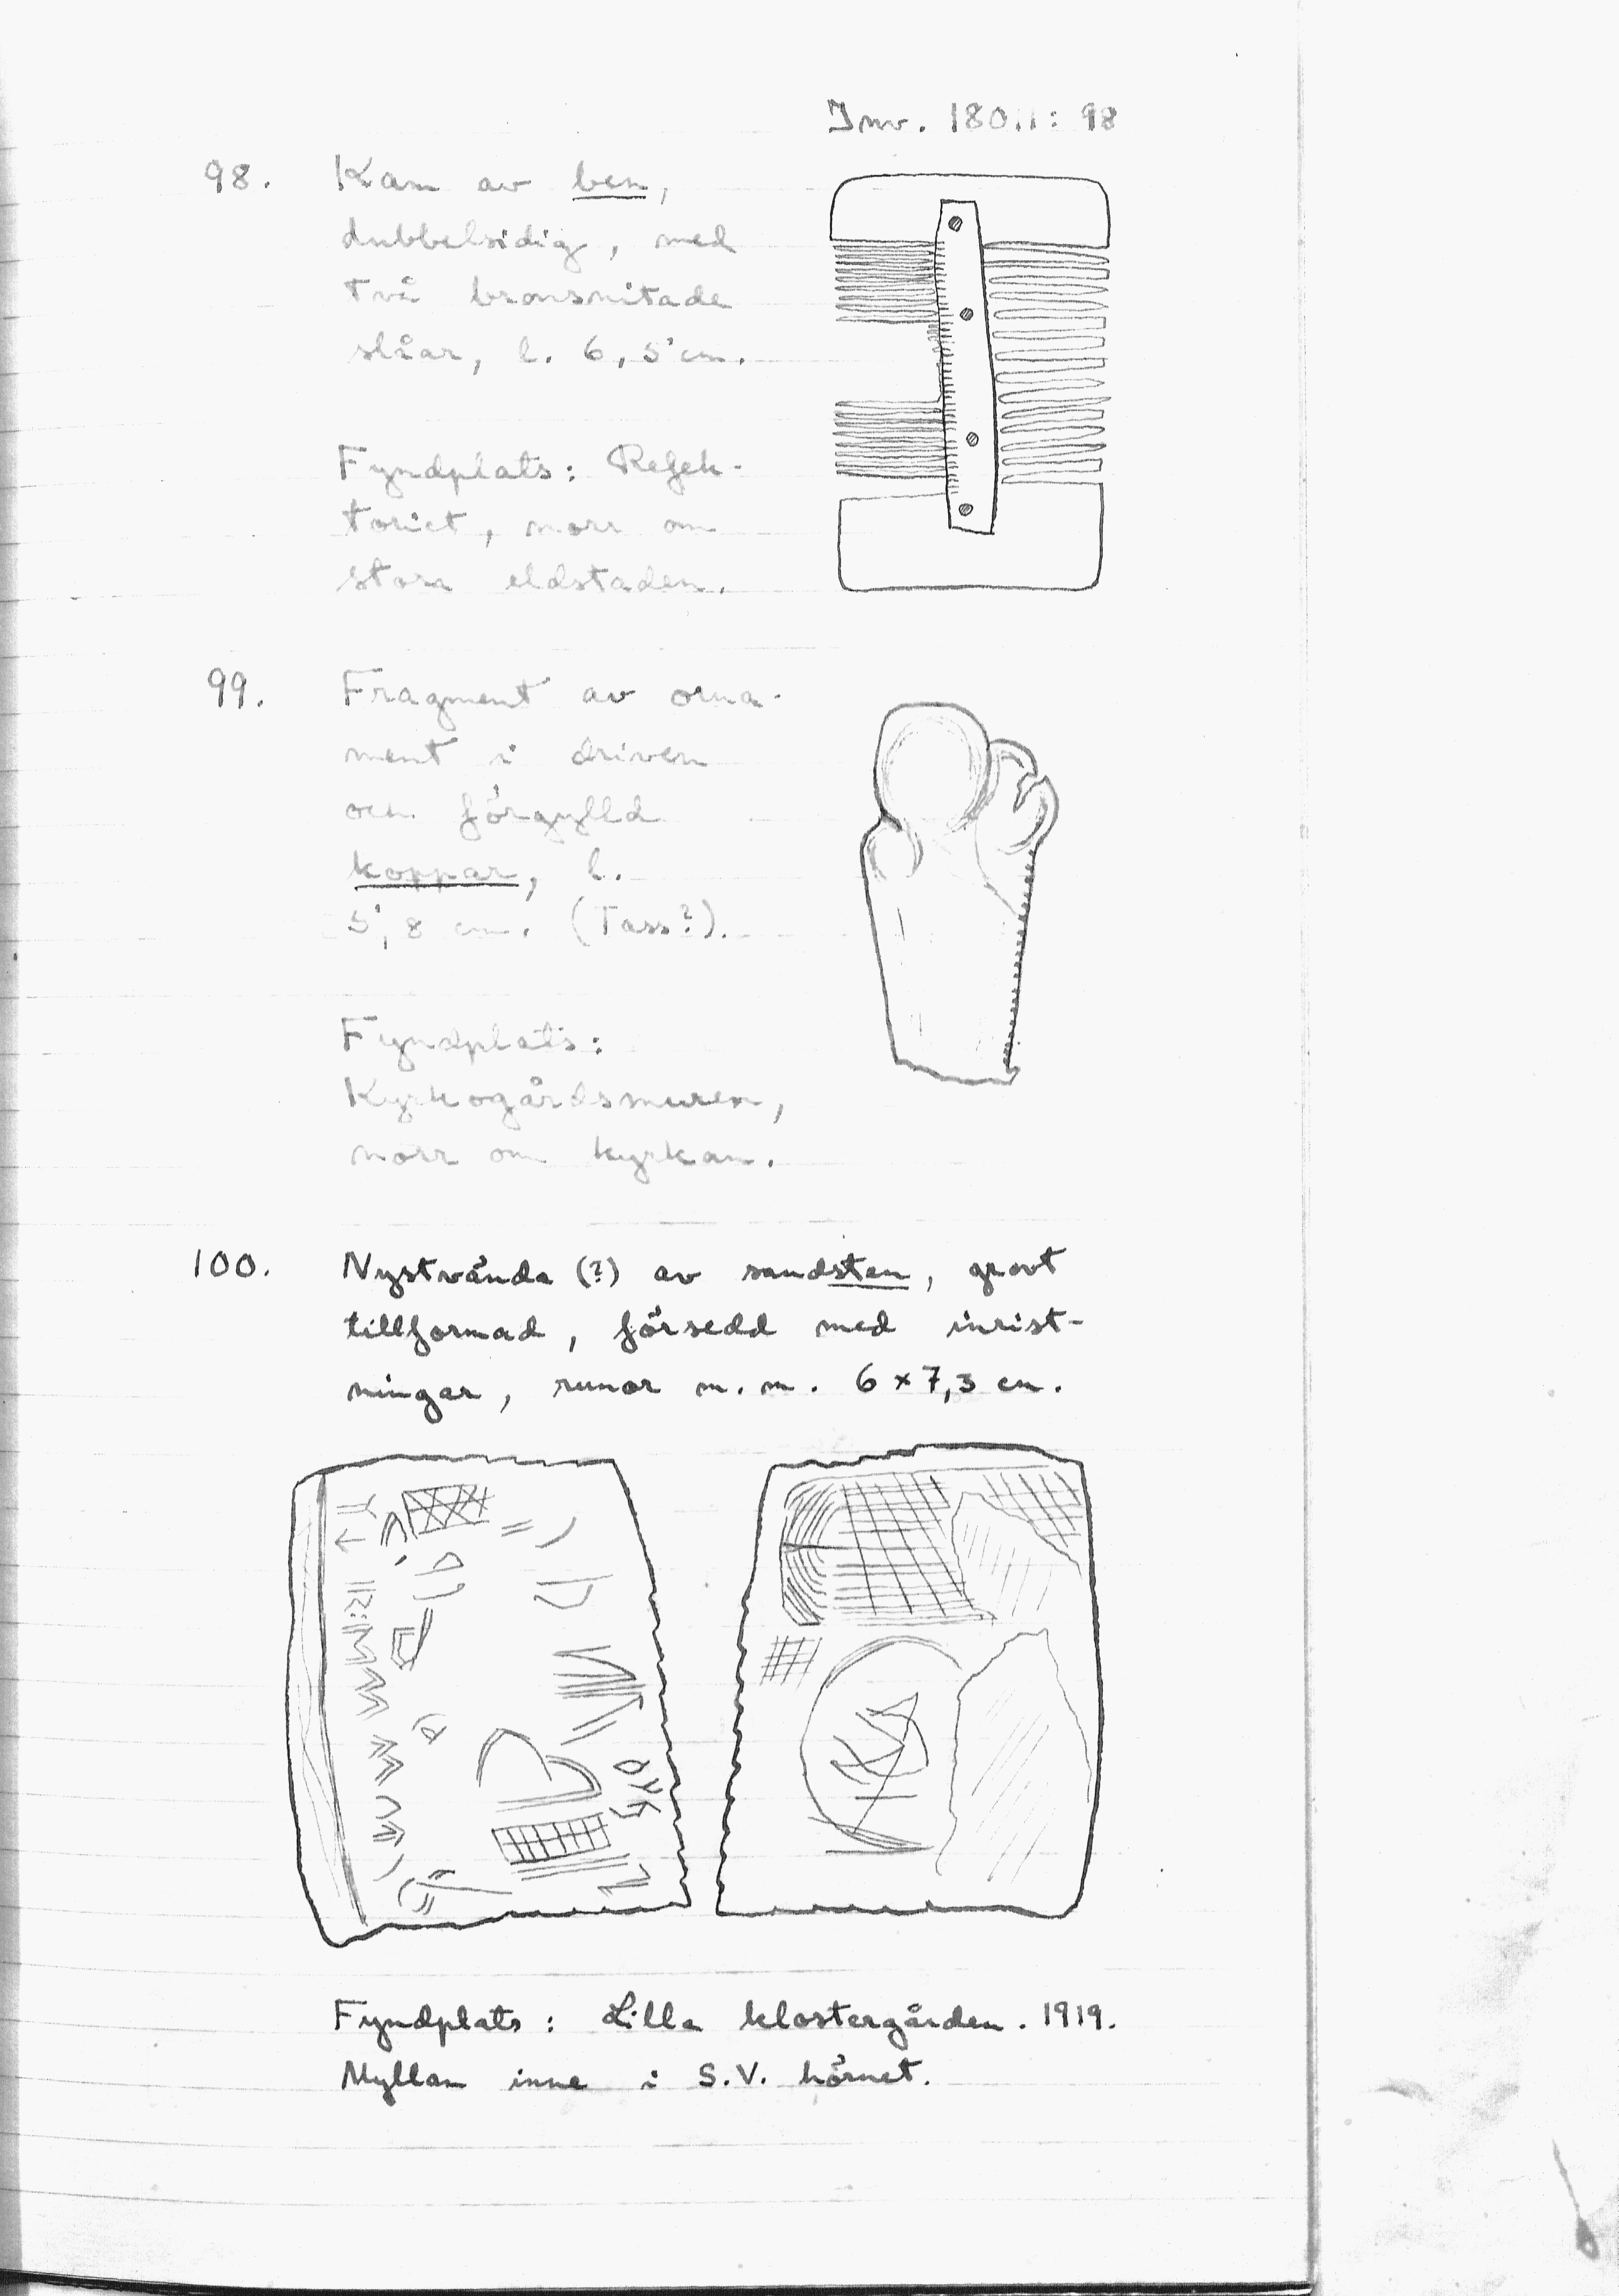 Inv. 18011: 98
98. Kam av ben,
dubbelsidig, med
två bronsnitade
slåar, l. 6,5 cm.
Fyndplats: Refek-
toriet, norr om
stora eldstaden.
99. Fragment av orna-
ment i driven
och förgylld
koppar, l.
5,8 cm. (Tass?).
Fyndplats:
Kyrkogårdsmuren,
norr om kyrkan.
100. Nystvända (?) av sandsten, grovt
tillformad, försedd med inrist-
ningar, runor m.m. 6 x 7,3 cm.
Fyndplats: Lilla klostergården. 1919.
Myllan inne i S.V. hörnet.